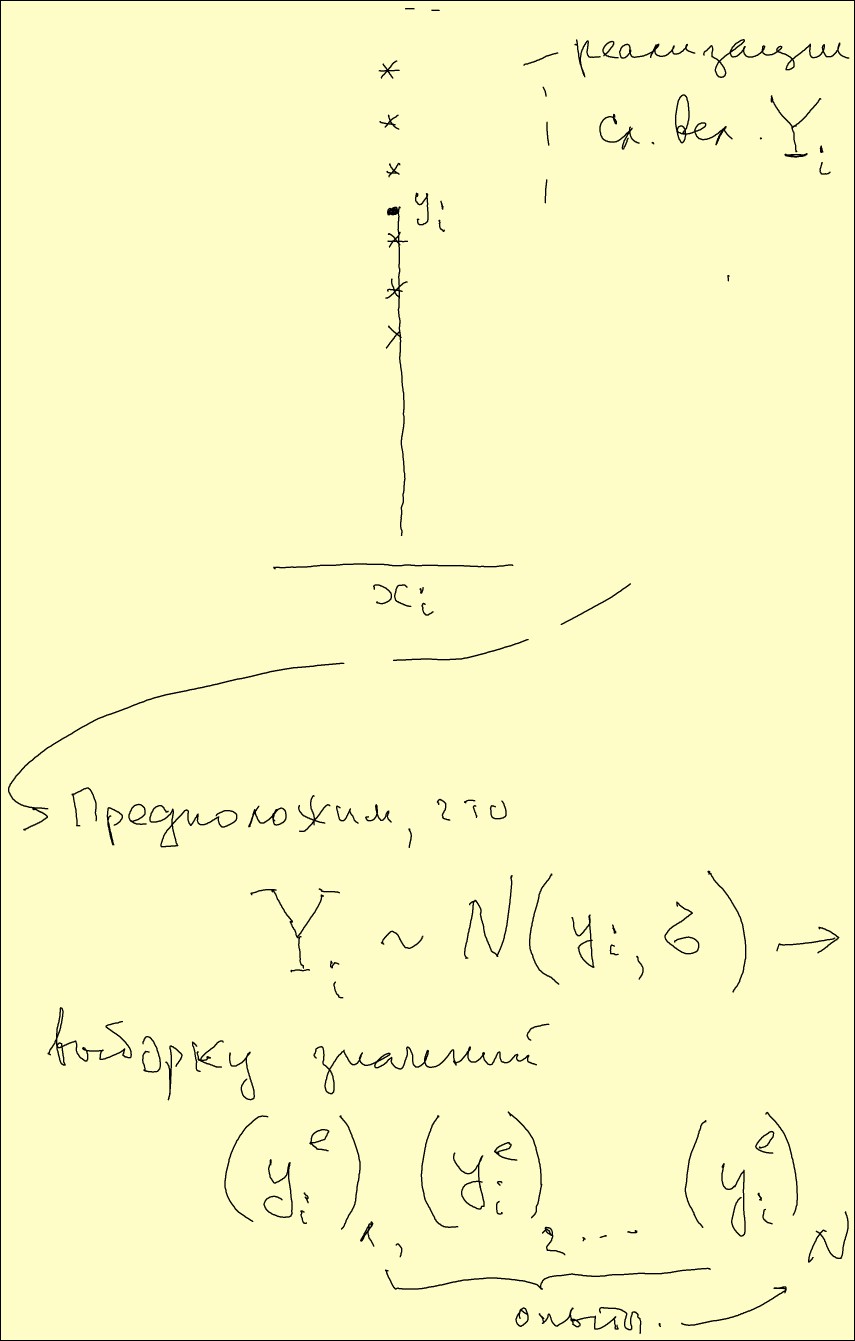 реализации
сл. вел. Y_i
y_i
x_i
Предположим, что
Y_i ~ N(y_i, σ) →
выборку значений
(y_i^e)_1, (y_i^e)_2 ... (y_i^e)_N
опыты.